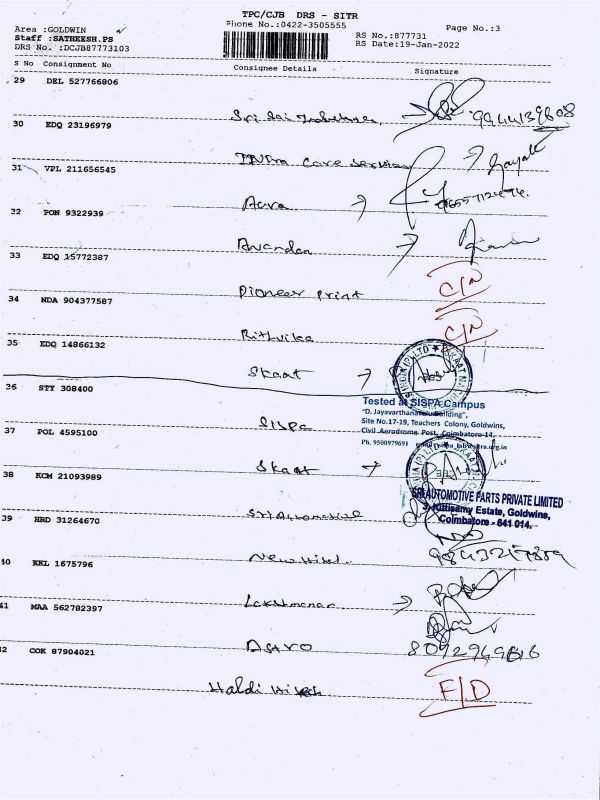 TPC/CJB DRS - SITR
Phone No.:0422-3505555
Page No.:3
Area :GOLDWIN
Staff :SATHEESH.PS
DRS No. :DCJB87773103
RS No.:877731
RS Date:19-Jan-2022
S No Consignment No Consignee Details Signature
29 DEL 527766806
30 EDQ 23196979
Care Services
31 VPL 211656545
Aara
32 PON 9322939
Anandan
33 EDQ 15772387
Pioneer print C/N
34 NDA 904377587
Rithvika C/N
35 EDQ 14866132
Skaat
36 STY 308400
Tested at SISPA Campus
"D. Jayavarthanavelu Building",
Site No.17-19, Teachers Colony, Goldwins,
Civil Aerodrome Post, Coimbatore-14.
Ph. 9500979691
SISPA
37 POL 4595100
Skaat
38 KCM 21093989
SRI AUTOMOTIVE PARTS PRIVATE LIMITED
Estate, Goldwins,
Coimbatore - 641 014.
Sri Automotive
39 HRD 31264670
40 KKL 1675796
Lakshmanan
41 MAA 562782397
Astro
42 COK 87904021
Haldi F/D